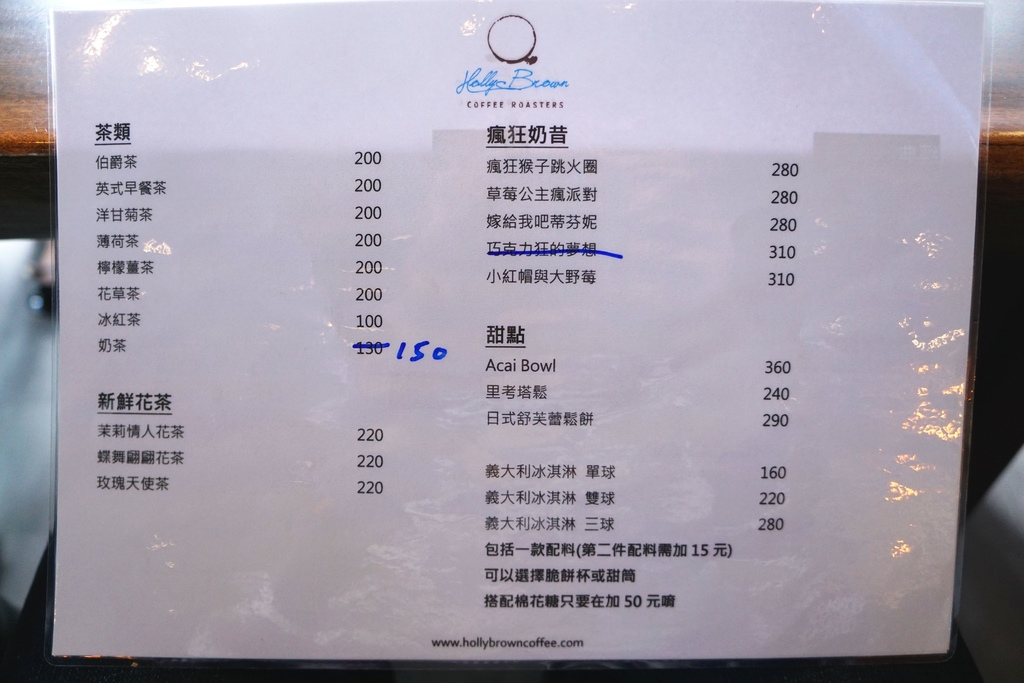 Holly Brown
COFFEE ROASTERS
茶類
伯爵茶 200
英式早餐茶 200
洋甘菊茶 200
薄荷茶 200
檸檬薑茶 200
花草茶 200
冰紅茶 100
奶茶 130 150
新鮮花茶
茉莉情人花茶 220
蝶舞翩翩花茶 220
玫瑰天使茶 220
瘋狂奶昔
瘋狂猴子跳火圈 280
草莓公主瘋派對 280
嫁給我吧蒂芬妮 280
巧克力狂的夢想 310
小紅帽與大野莓 310
甜點
Acai Bowl 360
里考塔鬆 240
日式舒芙蕾鬆餅 290
義大利冰淇淋 單球 160
義大利冰淇淋 雙球 220
義大利冰淇淋 三球 280
包括一款配料(第二件配料需加 15 元)
可以選擇脆餅杯或甜筒
搭配棉花糖只要在加 50 元唷
www.hollybrowncoffee.com